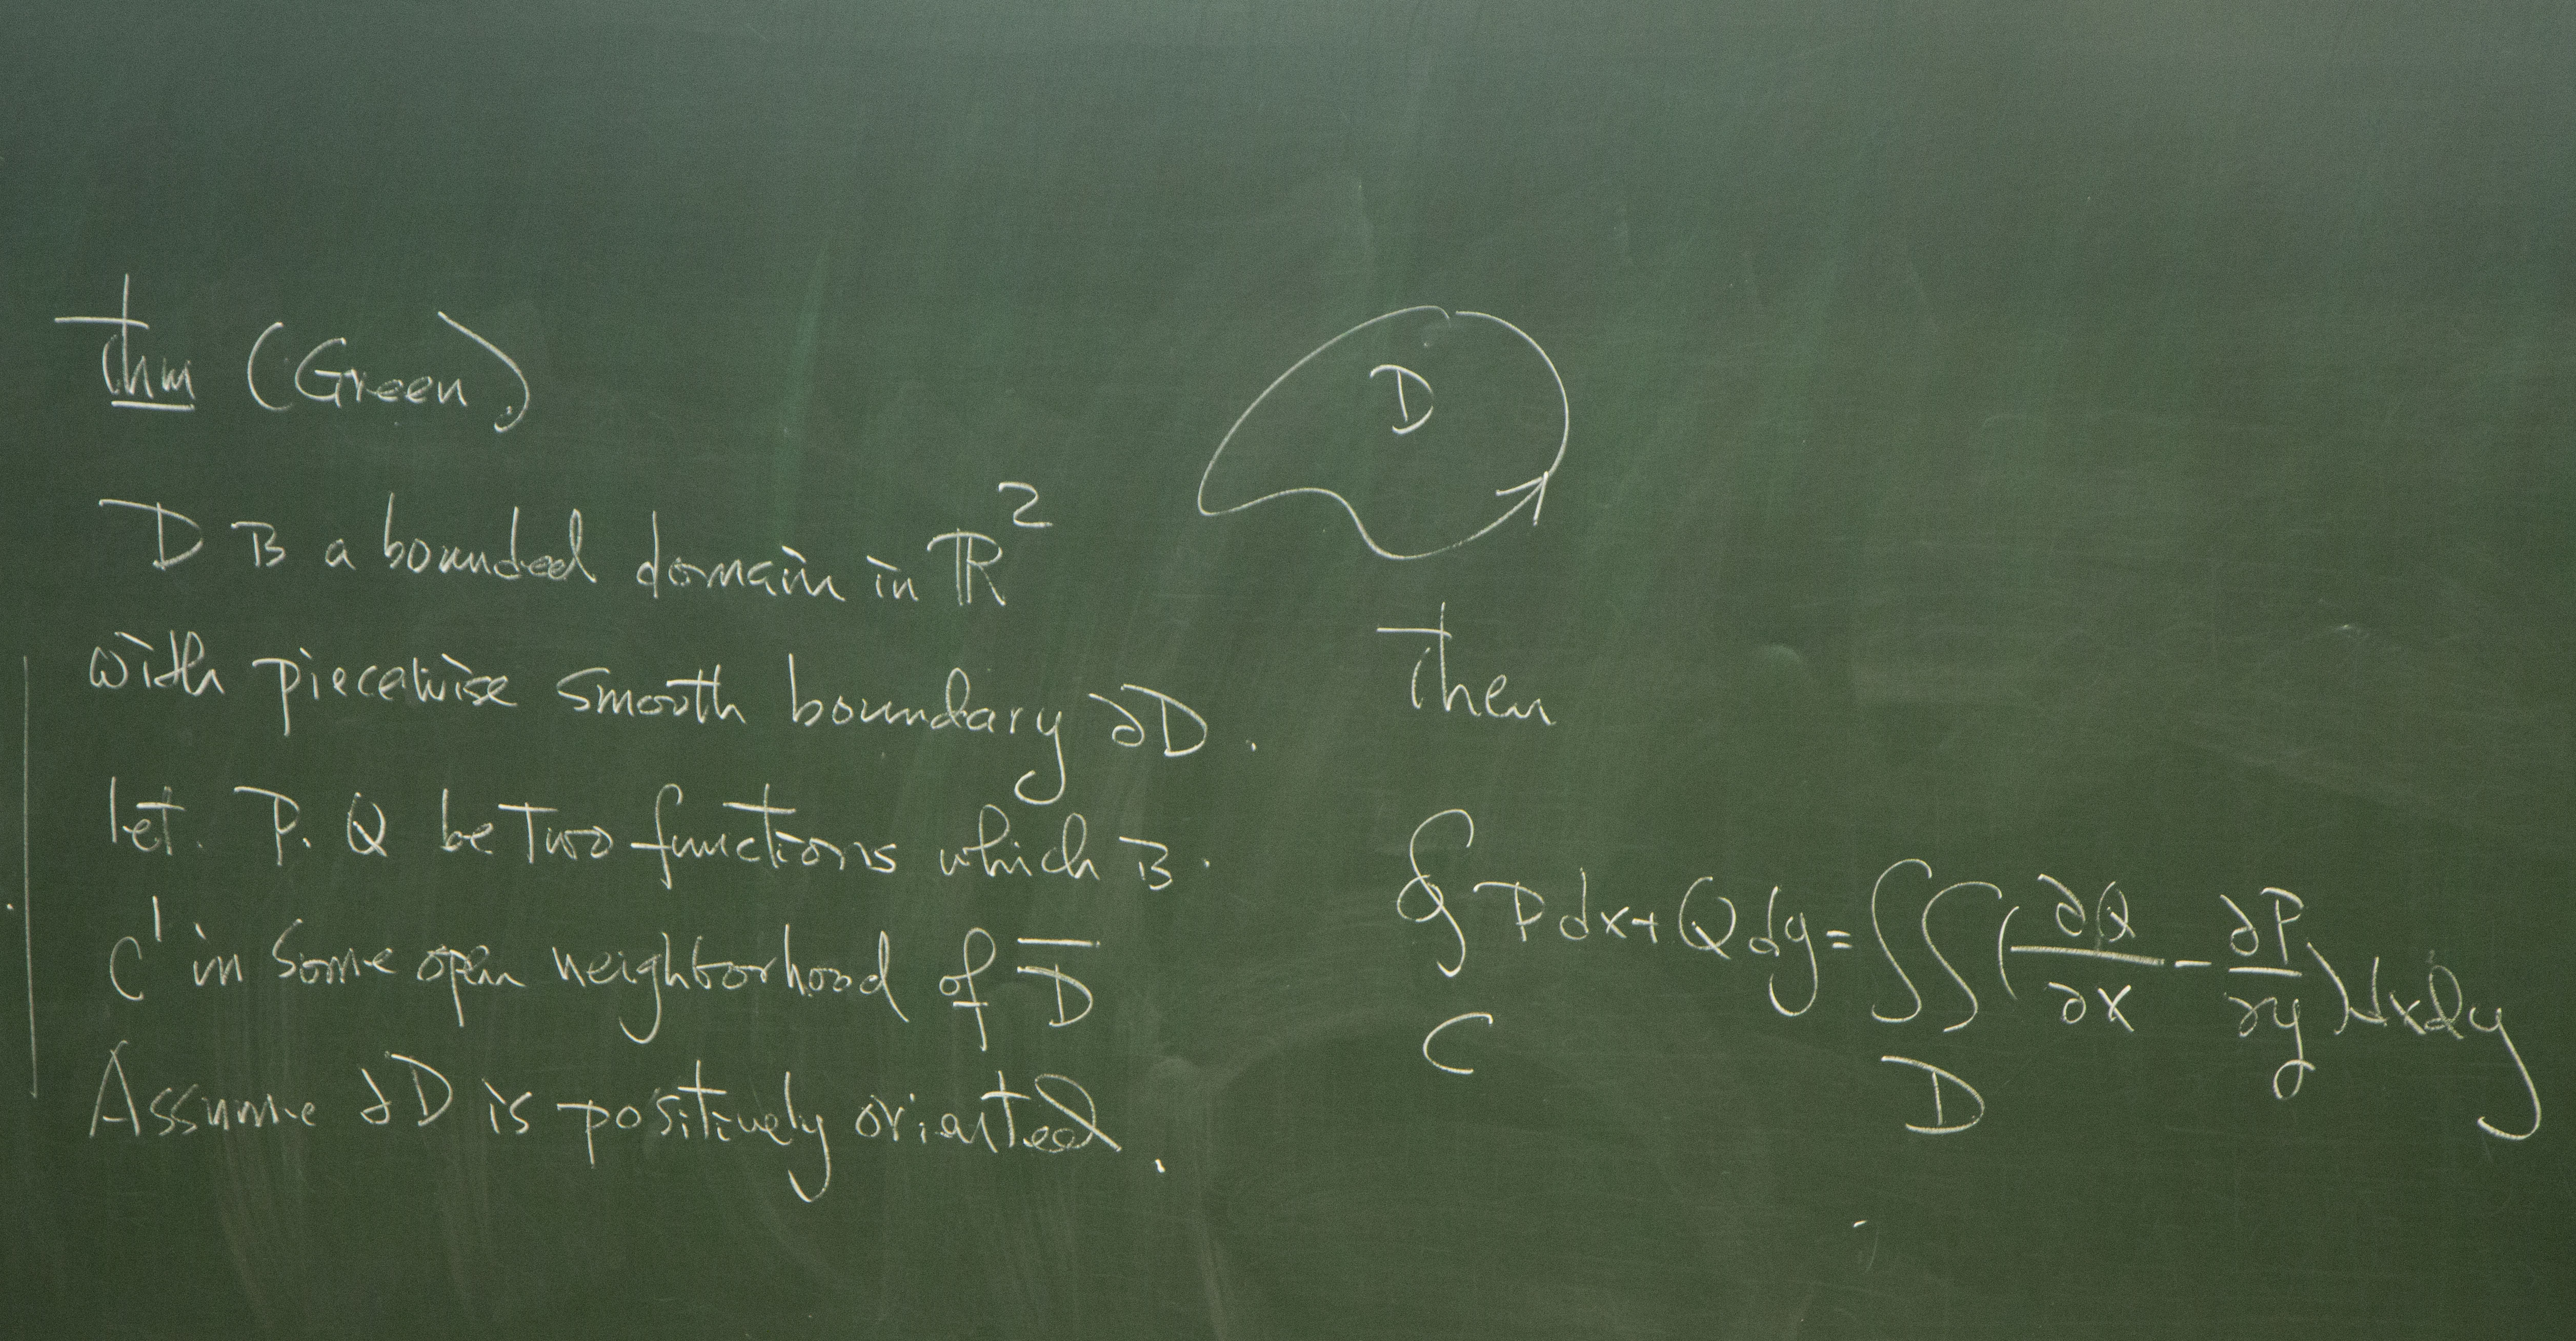 Thm (Green)
D is a bounded domain in ℝ²
with piecewise smooth boundary ∂D.
let. P. Q be two functions which is
C¹ in some open neighborhood of D̅
Assume ∂D is positively oriented.
D
Then
∮_C Pdx+Qdy=∬_D(∂Q/∂x-∂P/∂y)dxdy